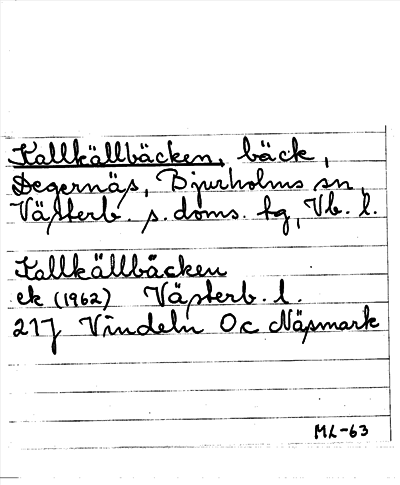 Kallkällbäcken, bäck,
Degernäs, Bjurholms sn,
Västerb. s. doms. tg, Vb. l.
Kallkällbäcken
ek (1962) Västerb. l.
21J Vindeln 0c Näsmark
ML-63